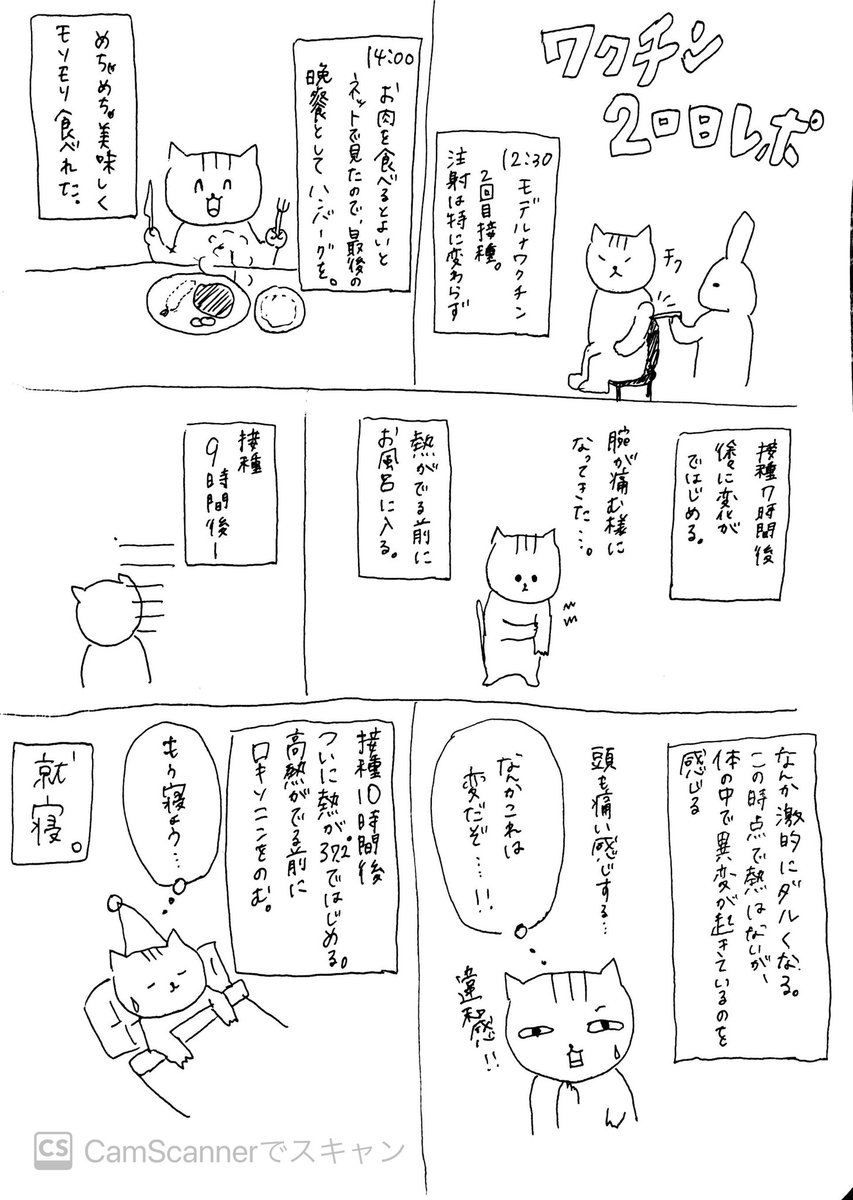 ワクチン
2回目レポ
12:30
モデルナワクチン
2回目接種。
注射は特に変わらず
チク
14:00
お肉を食べるとよいと
ネットで見たので、最後の
晩餐としてハンバーグを。
めちゃめちゃ美味しく
モリモリ食べれた。
接種7時間後
徐々に変化が
ではじめる。
腕が痛む様に
なってきた…。
熱がでる前に
お風呂に入る。
接種
9時間後ー
なんか激的にダルくなる。
この時点で熱はないがー
体の中で異変が起きているのを
感じる
頭も痛い感じする…
なんかこれは
変だぞ……!!
違和感!!
接種10時間後
ついに熱が37.2ではじめる。
高熱がでる前に
ロキソニンをのむ。
もう寝よう…
就寝。
CS CamScannerでスキャン